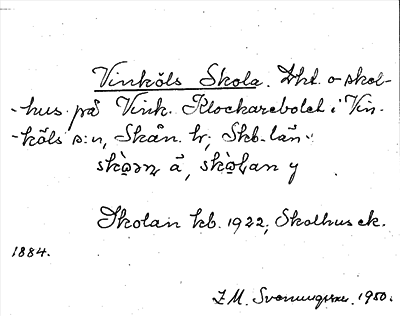 Vinköls Skola. Dht. o skol-
-hus på Vink. Klockarebolet i Vin-
-köls s:n, Skån. hr, Skb. län:
skò̤ən å, skò̤lan y
Skolan kb. 1922, Skolhus ek.
1884.
Z.M. Svenungsson. 1950.